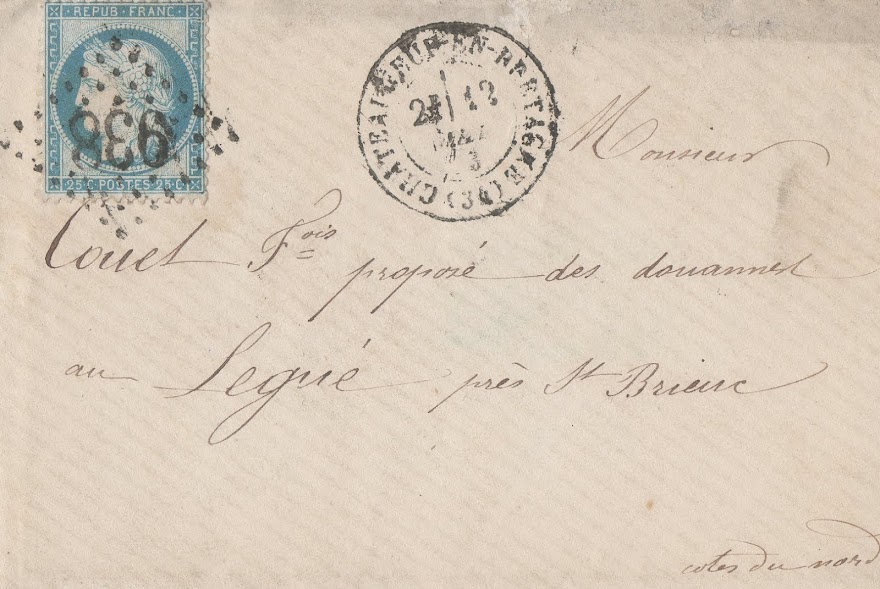 REPUB. FRANC.
936
25 C. POSTES 25 C.
CHATEAUNEUF-EN-BRETAGNE (34)
2E 12
MAI
73
Monsieur
Couet Fois proposé des douannes
au Legué près St Brieuc
cotes du nord